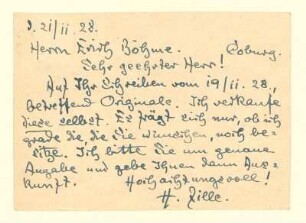 d. 21/II. 28.
Herrn Erich Böhme. Coburg.
Sehr geehrter Herr!
Auf Ihr Schreiben vom 19/II. 28.,
betreffend Originale. Ich verkaufe
diese selbst. Es frägt sich nur, ob ich
grade die die Sie wünschen, noch be-
sitze. Ich bitte Sie um genaue
Angabe und gebe Ihnen dann Aus-
kunft. Hochachtungsvoll!
H. Zille.